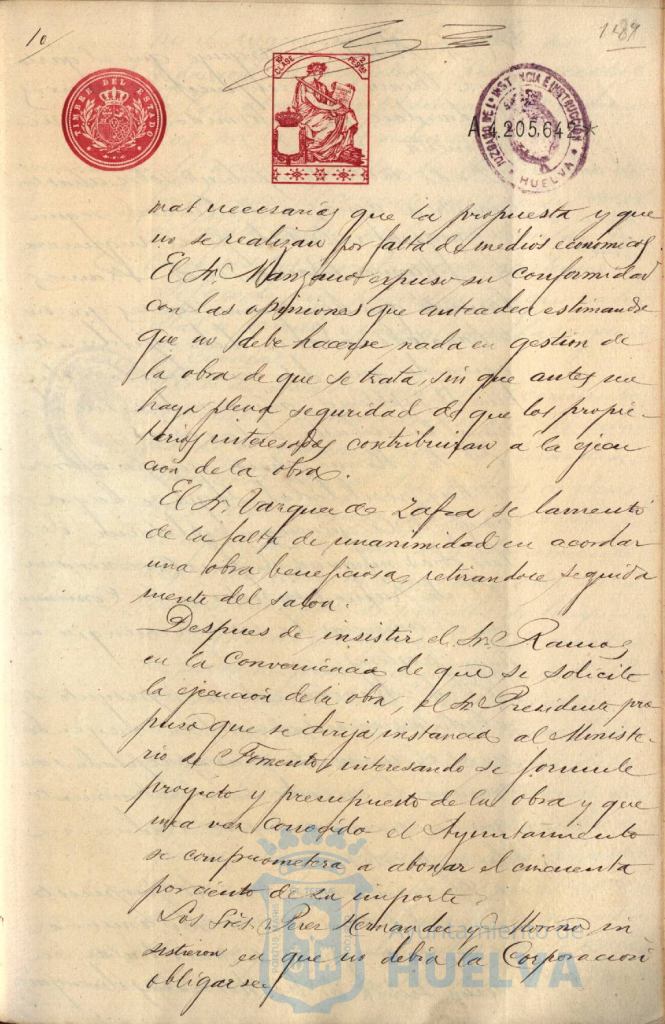 10
TIMBRE DEL ESTADO
CLASE
2 PESETAS
JUZGADO DE 1ª INSTANCIA E INSTRUCCIÓN
HUELVA
A4.205.642*
mas necesarias que la propuesta y que
no se realizan por falta de medios economicos
El Sr. Manzano expuso su conformidad
con las opiniones que anteceden estimando
que no debe hacerse nada en gestion de
la obra de que se trata, sin que antes no
haya plena seguridad de que los propie-
tarios interesados contribuiran a la ejecu
ción de la obra.
El Sr. Varquez de Zafra se lamentó
de la falta de unanimidad en acordar
una obra beneficiosa, retirandose seguida
mente del salon.
Despues de insistir el Sr. Ramos
en la conveniencia de que se solicite
la ejecución de la obra, el Sr. Presidente pro
puso que se dirija instancia al Ministe-
rio de Fomento, interesando se formule
proyecto y presupuesto de la obra y que
una vez conocido el Ayuntamiento
se comprometera a abonar el cincuenta
por ciento de su importe.
Los Srs. Perez Hernandez y Moreno in
sistieron en que no debia la Corporación
obligarse
Ayuntamiento de
HUELVA